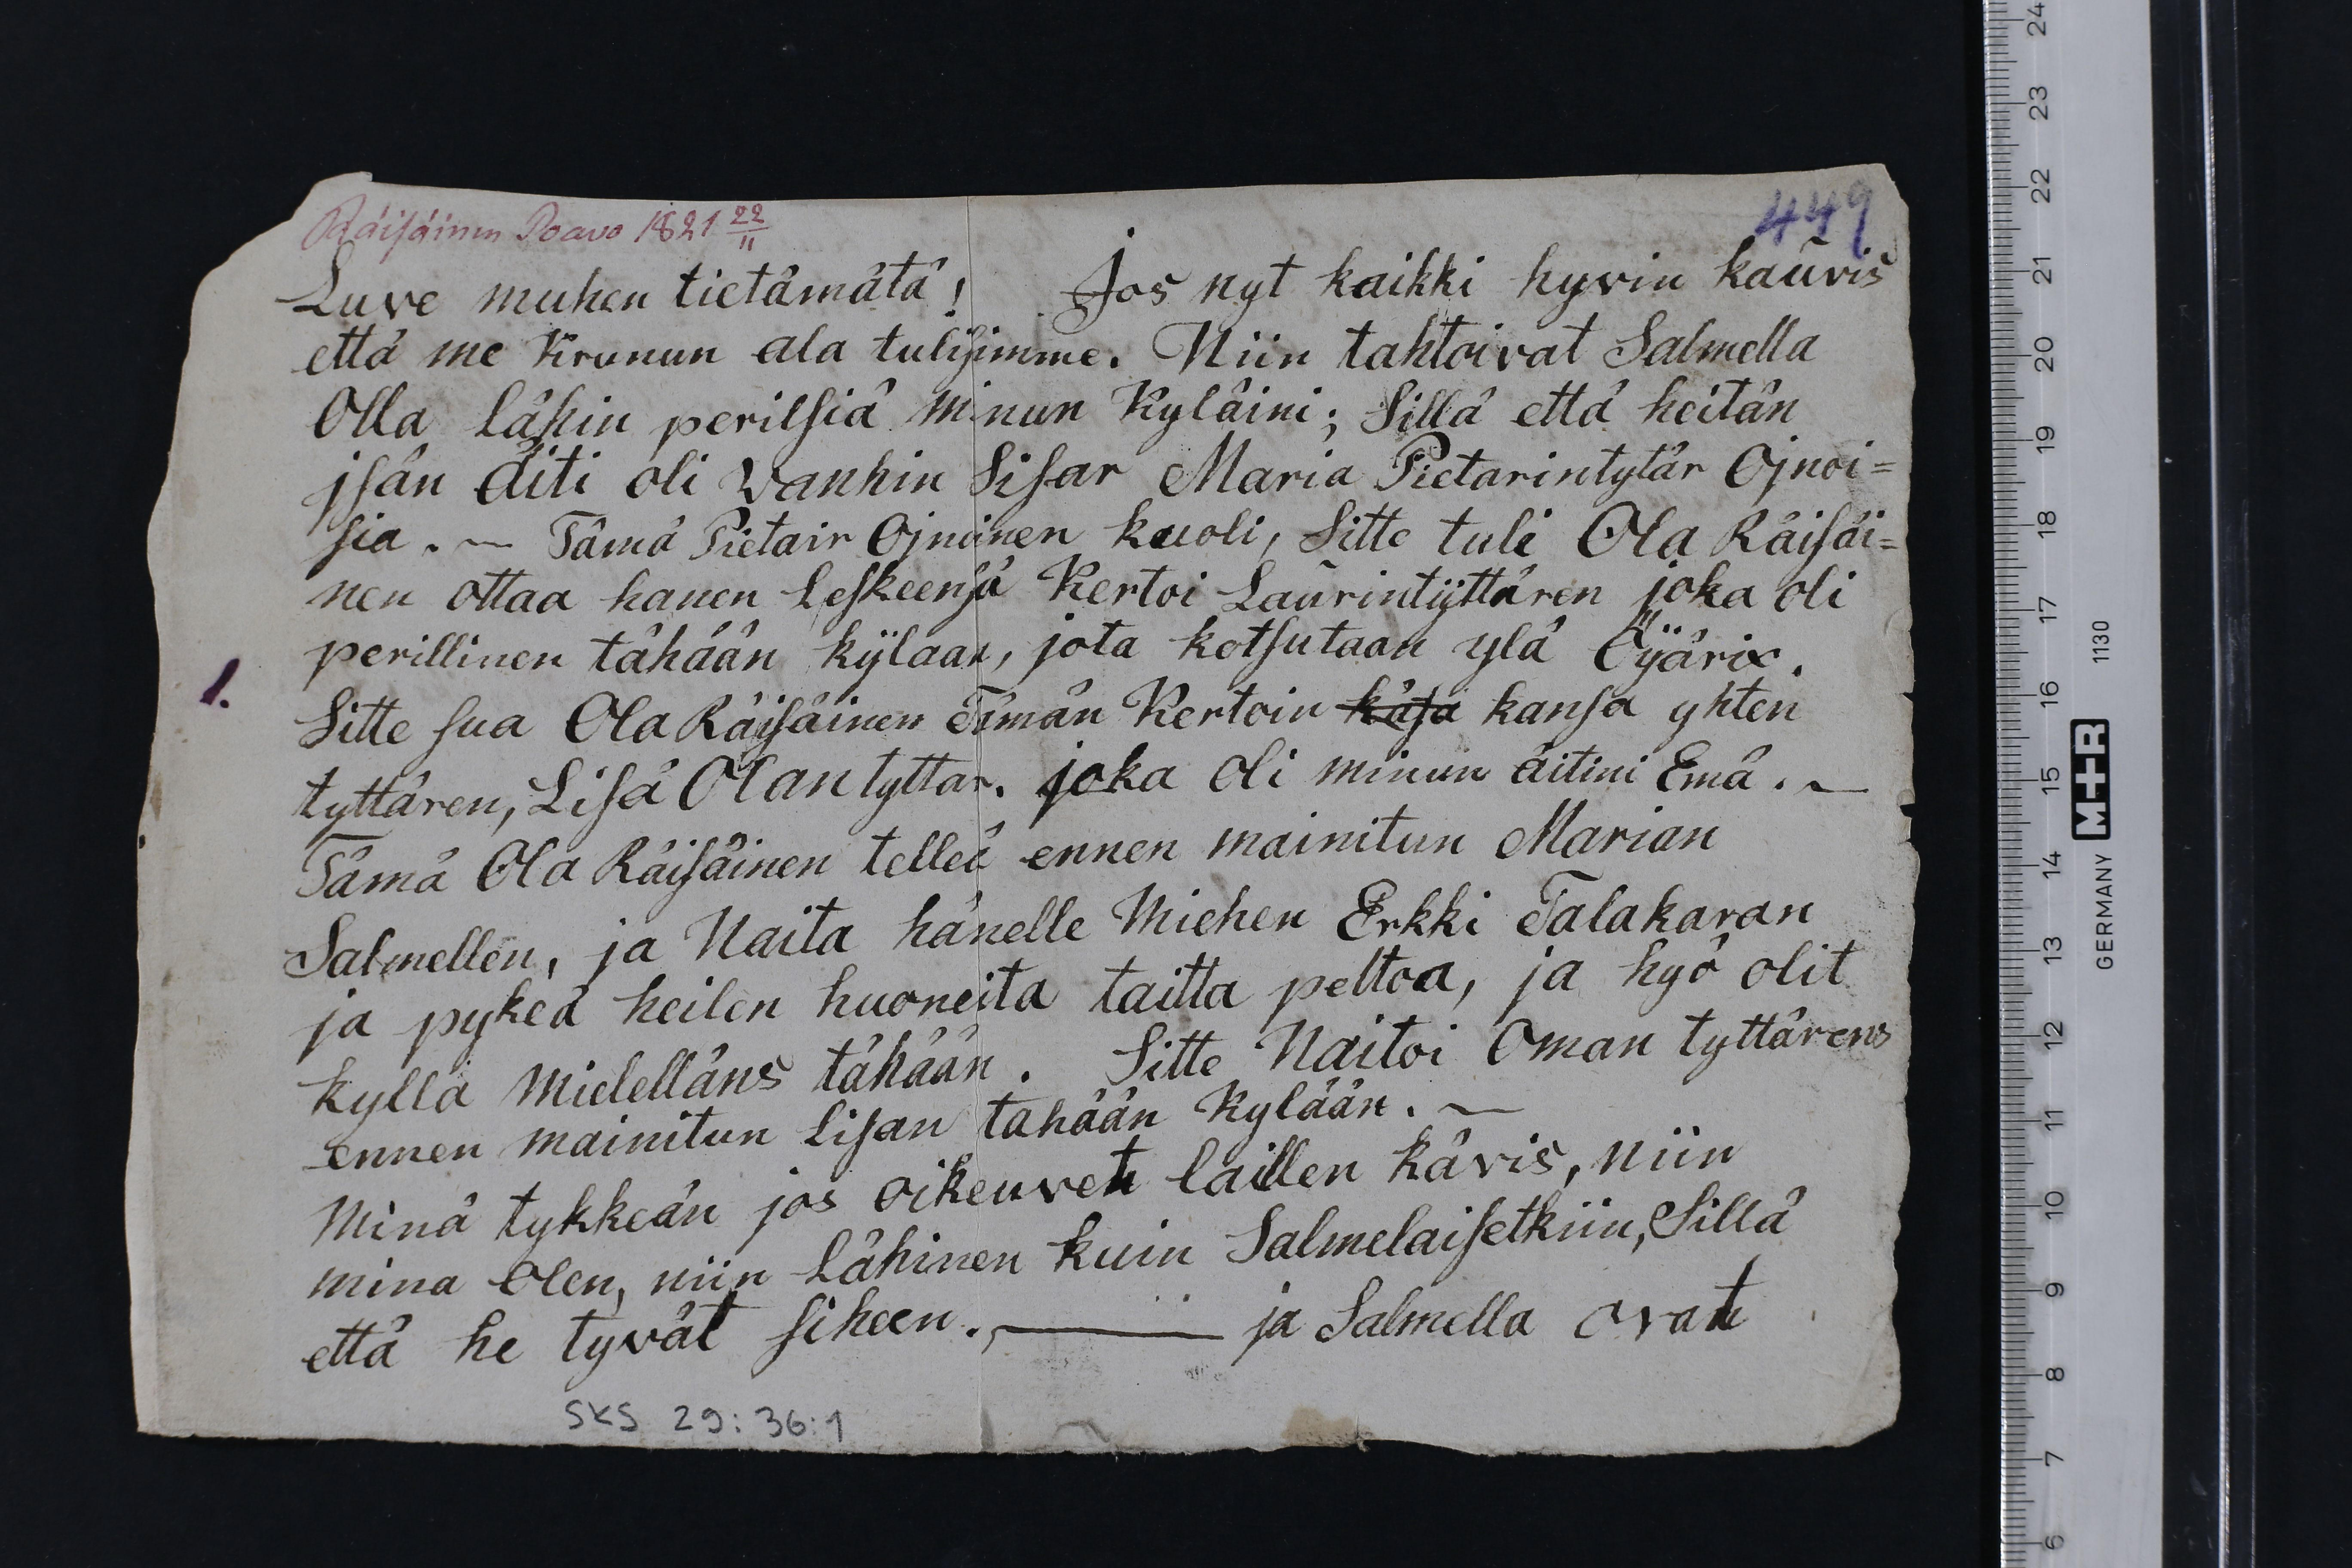 Räisäinen Poavo 1821 22/11
449
Luve muhen tietämätä! Jos nyt kaikki hyvin kaüvis
että me Krunun ala tulisimme. Niin tahtoivat Salmella
Olla Lähin perilsiä minun Kyläini; Sillä että heitän
jsän äiti oli Wanhin Sisar Maria Pietarintytär Ojnoi=
sia. ~ Tämä Pietair Ojnoinen kuoli, Sitte tuli Ola Räisäi=
nen ottaa hanen Leskeensä Kertoi Laürintÿttären joka oli
perillinen tähään kÿlaan, jota kotsutaan ylä Öÿärix.
1.
Sitte sua Ola Räisäinen Tämän Kertoin käsä kansa yhten
tyttären, Lisä Olantyttar. joka oli minun äitini Emä. ~
Tämä Ola Räisäinen telleä ennen mainitun Marian
Salmellen, ja Naita hänelle Miehen Erkki Talakaran
ja pykeä heilen huoneita taitta peltoa, ja hyö olit
kyllä Mielelläns tähään. Sitte Naitoi Oman tyttärens
ennen mainitun Lisan tahään Kylään. ~
Minä tykkeän jos oikeuven laillen kävis, niin
mina Olen, niin Lähinen kuin Salmelaisetkiin, Sillä
että he tyvät siheen. — ja Salmella ovat
SKS 29:36:1
24
23
22
21
20
19
18
17
16
15
14
13
12
11
10
9
8
7
6
GERMANY M+R 1130